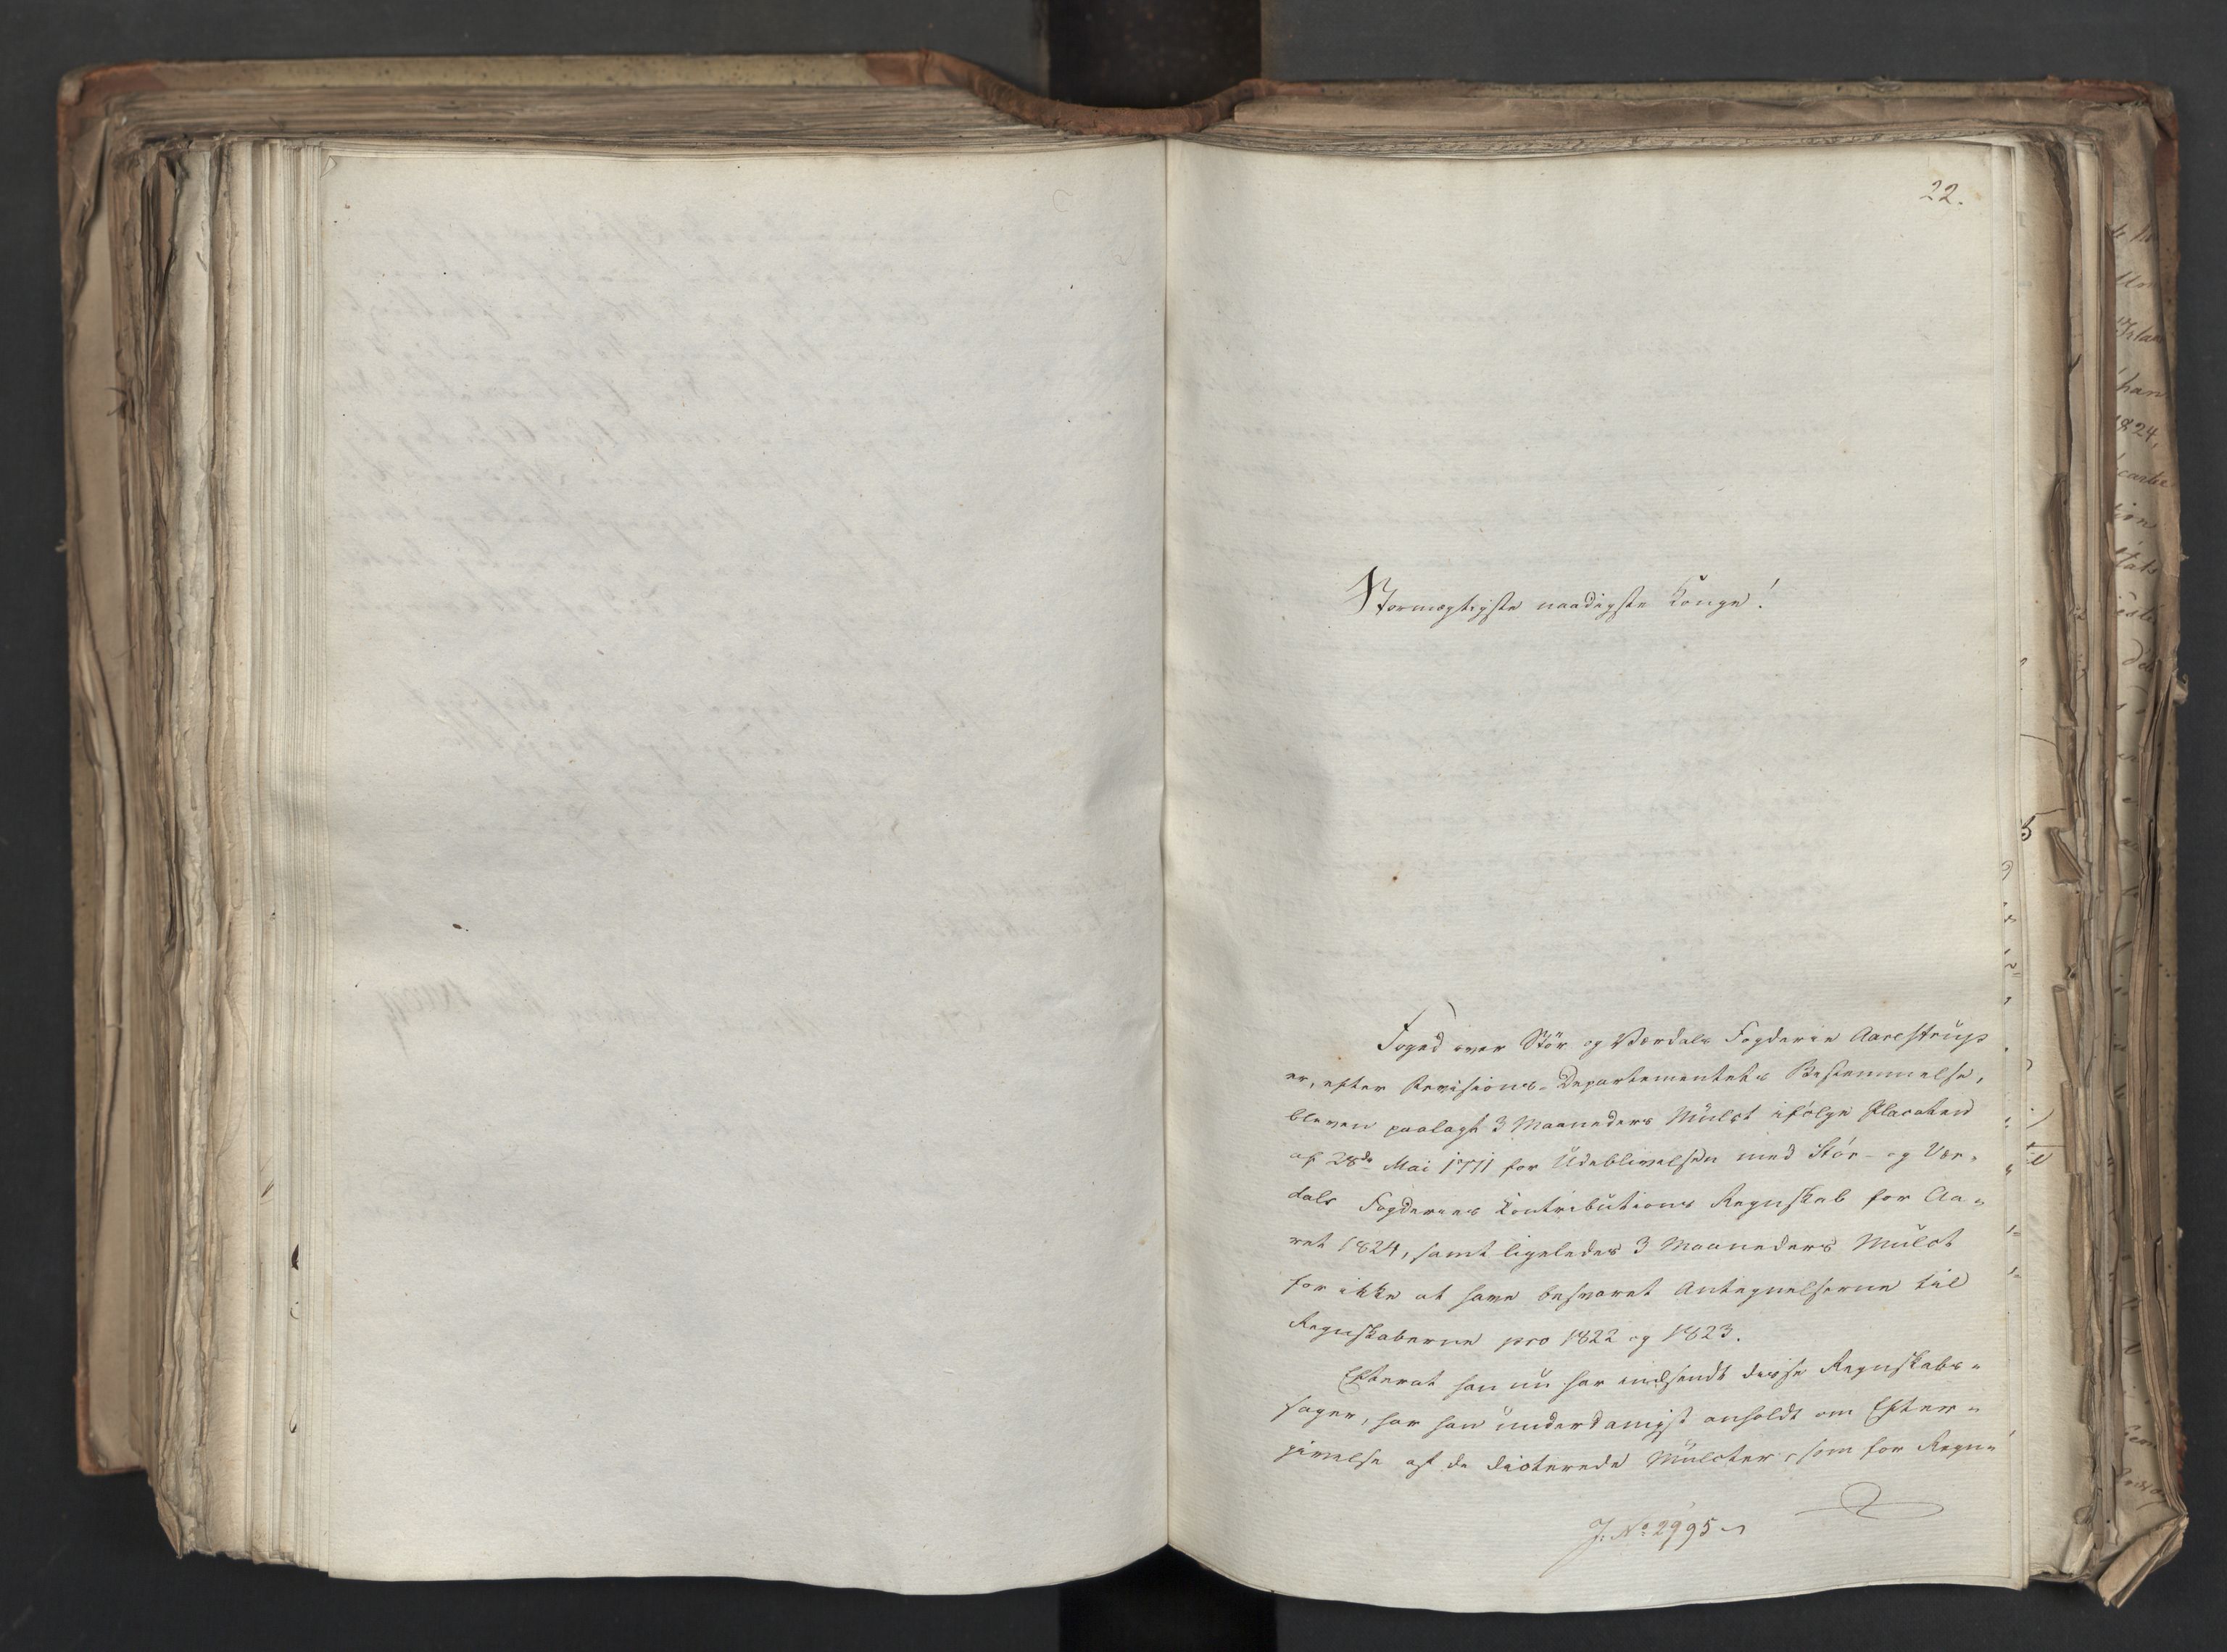 22.
Stormægtigste naadigste Konge!
Foged over Stör og Værdals Fogderie Aarestrup
er, efter Revisions-Departementets Bestemmelse,
bleven paalagt 3 Maaneders Mülct ifölge Placaten
af 28de Mai 1711 for Udeblivelsen med Stör- og Vær-
dals Fogderies Contributions Regnskab for Aa-
ret 1824, samt ligeledes 3 Maaneders Mülct
for ikke at have besvaret Antegnelserne til
Regnskaberne pro 1822 og 1823.
Efterat han nu har indsendt disse Regnskabs-
sager, har han underdanigst anholdt om Efter-
givelse af de dicterede Mülcter, som for Regn-
J. No 2995